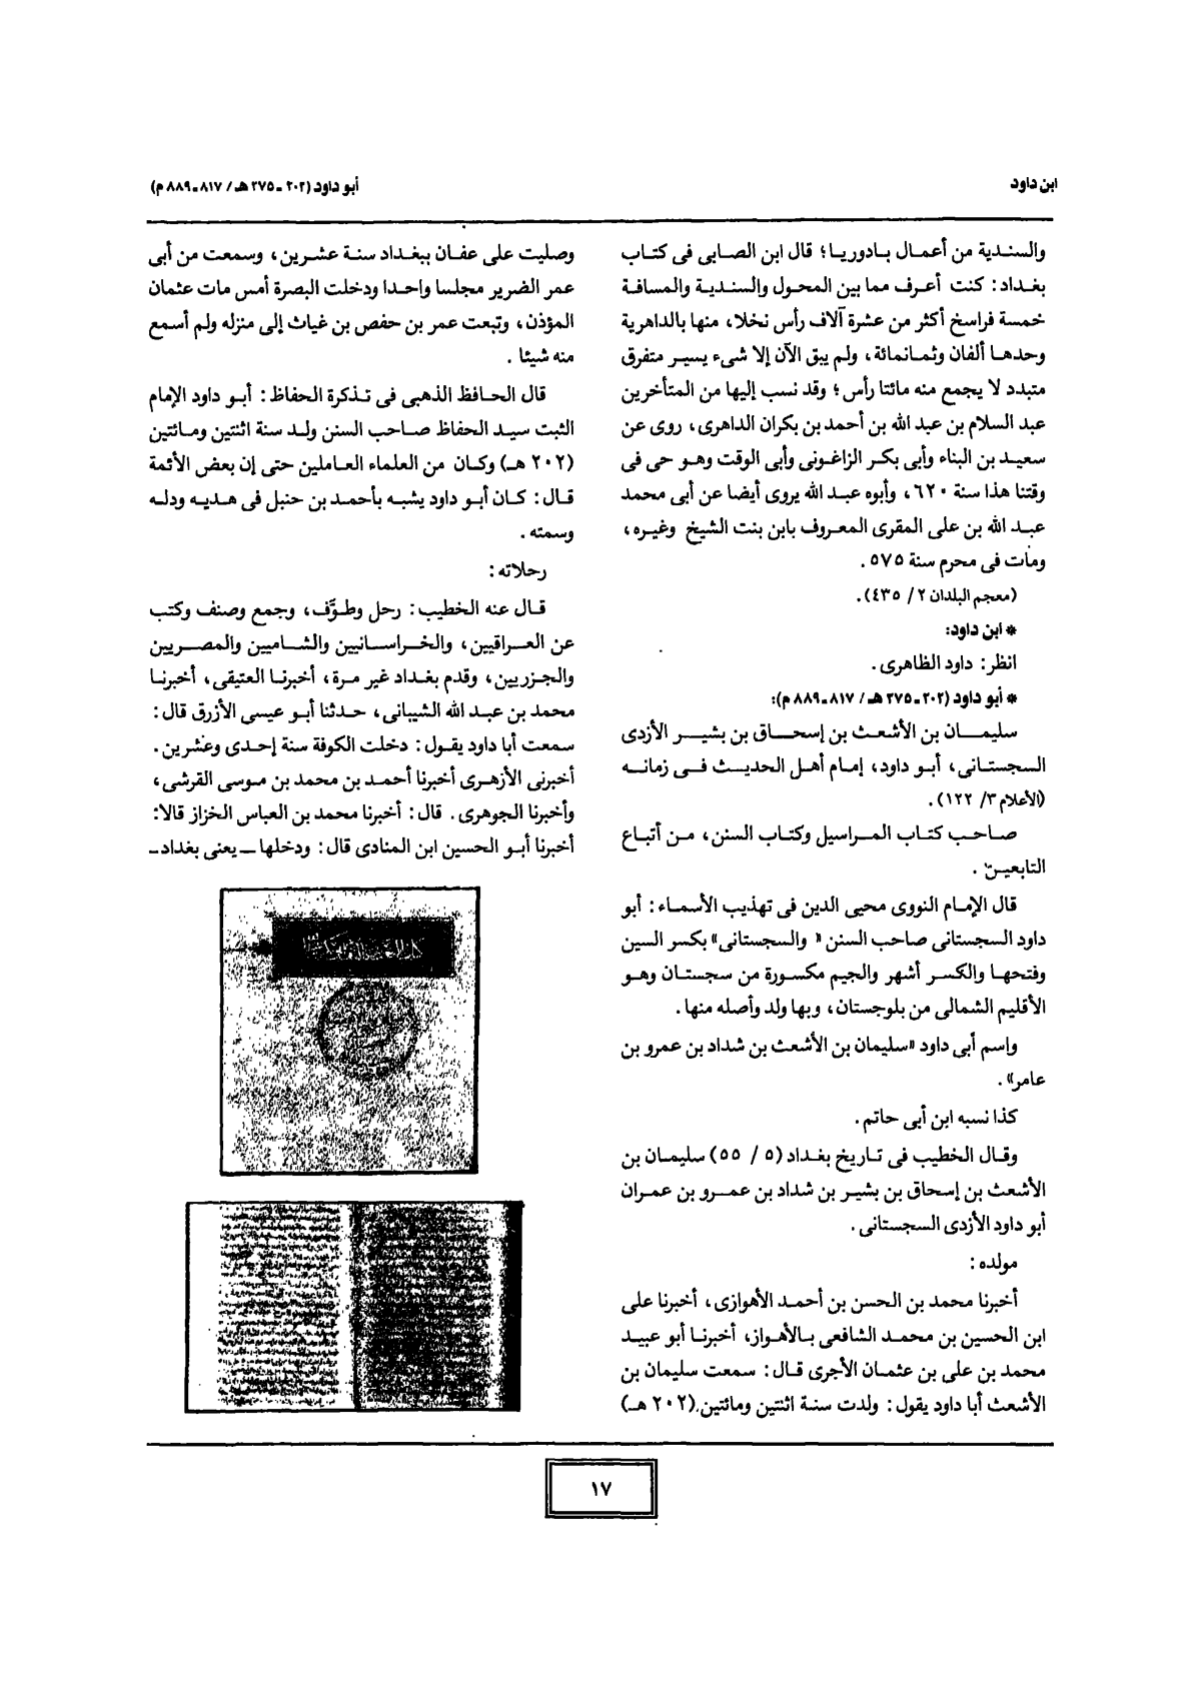 ابن داود
أبو داود (٢٠٢ ـ ٢٧٥ هـ / ٨١٧ ـ ٨٨٩ م)
والسندية من أعمال بادوريا؛ قال ابن الصابى فى كتاب
بغداد: كنت أعرف مما بين المحول والسندية والمسافة
خمسة فراسخ أكثر من عشرة آلاف رأس نخلا، منها بالداهرية
وحدها ألفان وثمانمائة، ولم يبق الآن إلا شىء يسير متفرق
متبدد لا يجمع منه مائتا رأس؛ وقد نسب إليها من المتأخرين
عبد السلام بن عبد الله بن أحمد بن بكران الداهرى، روى عن
سعيد بن البناء وأبى بكر الزاغونى وأبى الوقت وهو حى فى
وقتنا هذا سنة ٦٢٠، وأبوه عبد الله يروى أيضا عن أبى محمد
عبد الله بن على المقرى المعروف بابن بنت الشيخ وغيره،
ومات فى محرم سنة ٥٧٥ .
(معجم البلدان ٢ / ٤٣٥).
* ابن داود:
انظر: داود الظاهرى .
* أبو داود (٢٠٢ ـ ٢٧٥ هـ / ٨١٧ ـ ٨٨٩ م):
سليمان بن الأشعث بن إسحاق بن بشير الأزدى
السجستانى، أبو داود، إمام أهل الحديث فى زمانه
(الأعلام ٣/ ١٢٢).
صاحب كتاب المراسيل وكتاب السنن، من أتباع
التابعين .
قال الإمام النووى محيى الدين فى تهذيب الأسماء: أبو
داود السجستانى صاحب السنن « والسجستانى» بكسر السين
وفتحها والكسر أشهر والجيم مكسورة من سجستان وهو
الأقليم الشمالى من بلوجستان، وبها ولد وأصله منها .
واسم أبى داود «سليمان بن الأشعث بن شداد بن عمرو بن
عامر» .
كذا نسبه ابن أبى حاتم .
وقال الخطيب فى تاريخ بغداد (٥ / ٥٥) سليمان بن
الأشعث بن إسحاق بن بشير بن شداد بن عمرو بن عمران
أبو داود الأزدى السجستانى .
مولده :
أخبرنا محمد بن الحسن بن أحمد الأهوازى، أخبرنا على
ابن الحسين بن محمد الشافعى بالأهواز، أخبرنا أبو عبيد
محمد بن على بن عثمان الأجرى قال: سمعت سليمان بن
الأشعث أبا داود يقول: ولدت سنة اثنتين ومائتين (٢٠٢ هـ)
وصليت على عفان ببغداد سنة عشرين، وسمعت من أبى
عمر الضرير مجلسا واحدا ودخلت البصرة أمس مات عثمان
المؤذن، وتبعت عمر بن حفص بن غياث إلى منزله ولم أسمع
منه شيئا .
قال الحافظ الذهبى فى تذكرة الحفاظ: أبو داود الإمام
الثبت سيد الحفاظ صاحب السنن ولد سنة اثنتين ومائتين
(٢٠٢ هـ) وكان من العلماء العاملين حتى إن بعض الأئمة
قال: كان أبو داود يشبه بأحمد بن حنبل فى هديه ودله
وسمته .
رحلاته :
قال عنه الخطيب: رحل وطوَّف، وجمع وصنف وكتب
عن العراقيين، والخراسانيين والشاميين والمصريين
والجزريين، وقدم بغداد غير مرة، أخبرنا العتيقى، أخبرنا
محمد بن عبد الله الشيبانى، حدثنا أبو عيسى الأزرق قال:
سمعت أبا داود يقول: دخلت الكوفة سنة إحدى وعشرين .
أخبرنى الأزهرى أخبرنا أحمد بن محمد بن موسى القرشى،
وأخبرنا الجوهرى . قال: أخبرنا محمد بن العباس الخزاز قالا:
أخبرنا أبو الحسين ابن المنادى قال: ودخلها ـ يعنى بغداد ـ
١٧